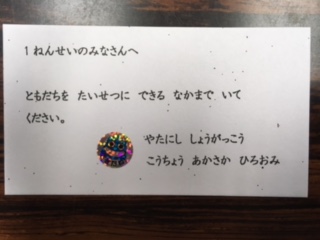 1ねんせいのみなさんへ
ともだちを たいせつに できる なかまで いて
ください。
やたにし しょうがっこう
こうちょう あかさか ひろおみ